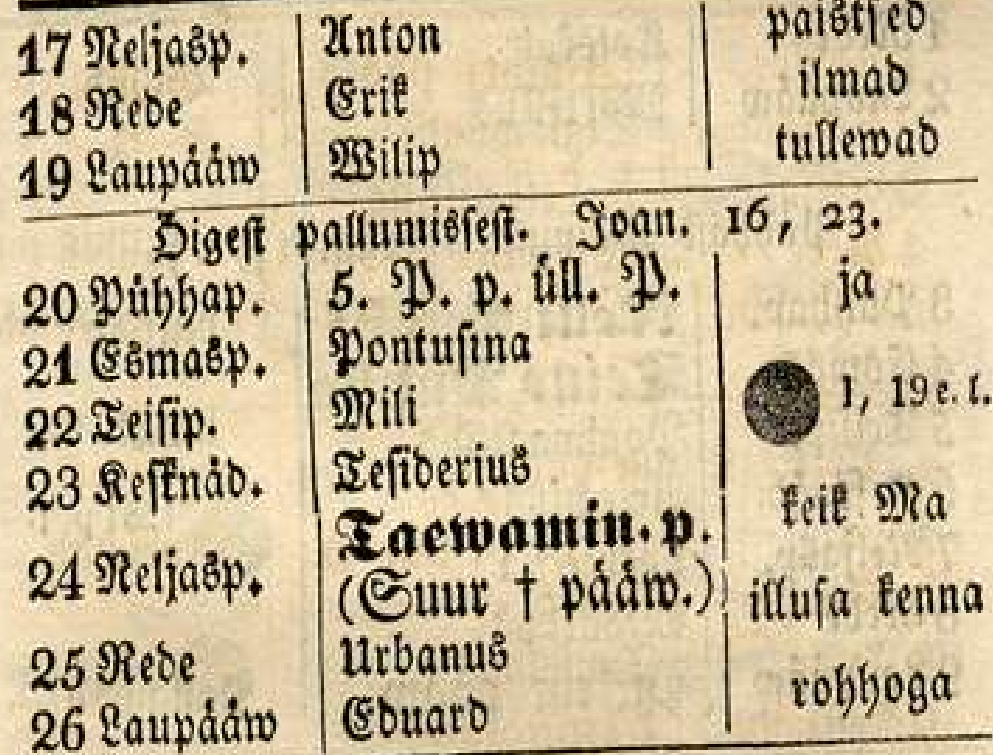 17 Neljasp. Anton paistsed
18 Rede Erik ilmad
19 Laupääw Wilip tullewad
Öigest pallumissest. Joan. 16, 23.
20 Pühhap. 5. P. p. üll. P. ja
21 Esmasp. Pontusina
22 Teisip. Mili 1, 19 e. l.
23 Kesknäd. Tesiderius
keik Ma
Taewamin. p.
24 Neljasp. (Suur † pääw.) illusa kenna
25 Rede Urbanus
rohhoga
26 Laupääw Eduard